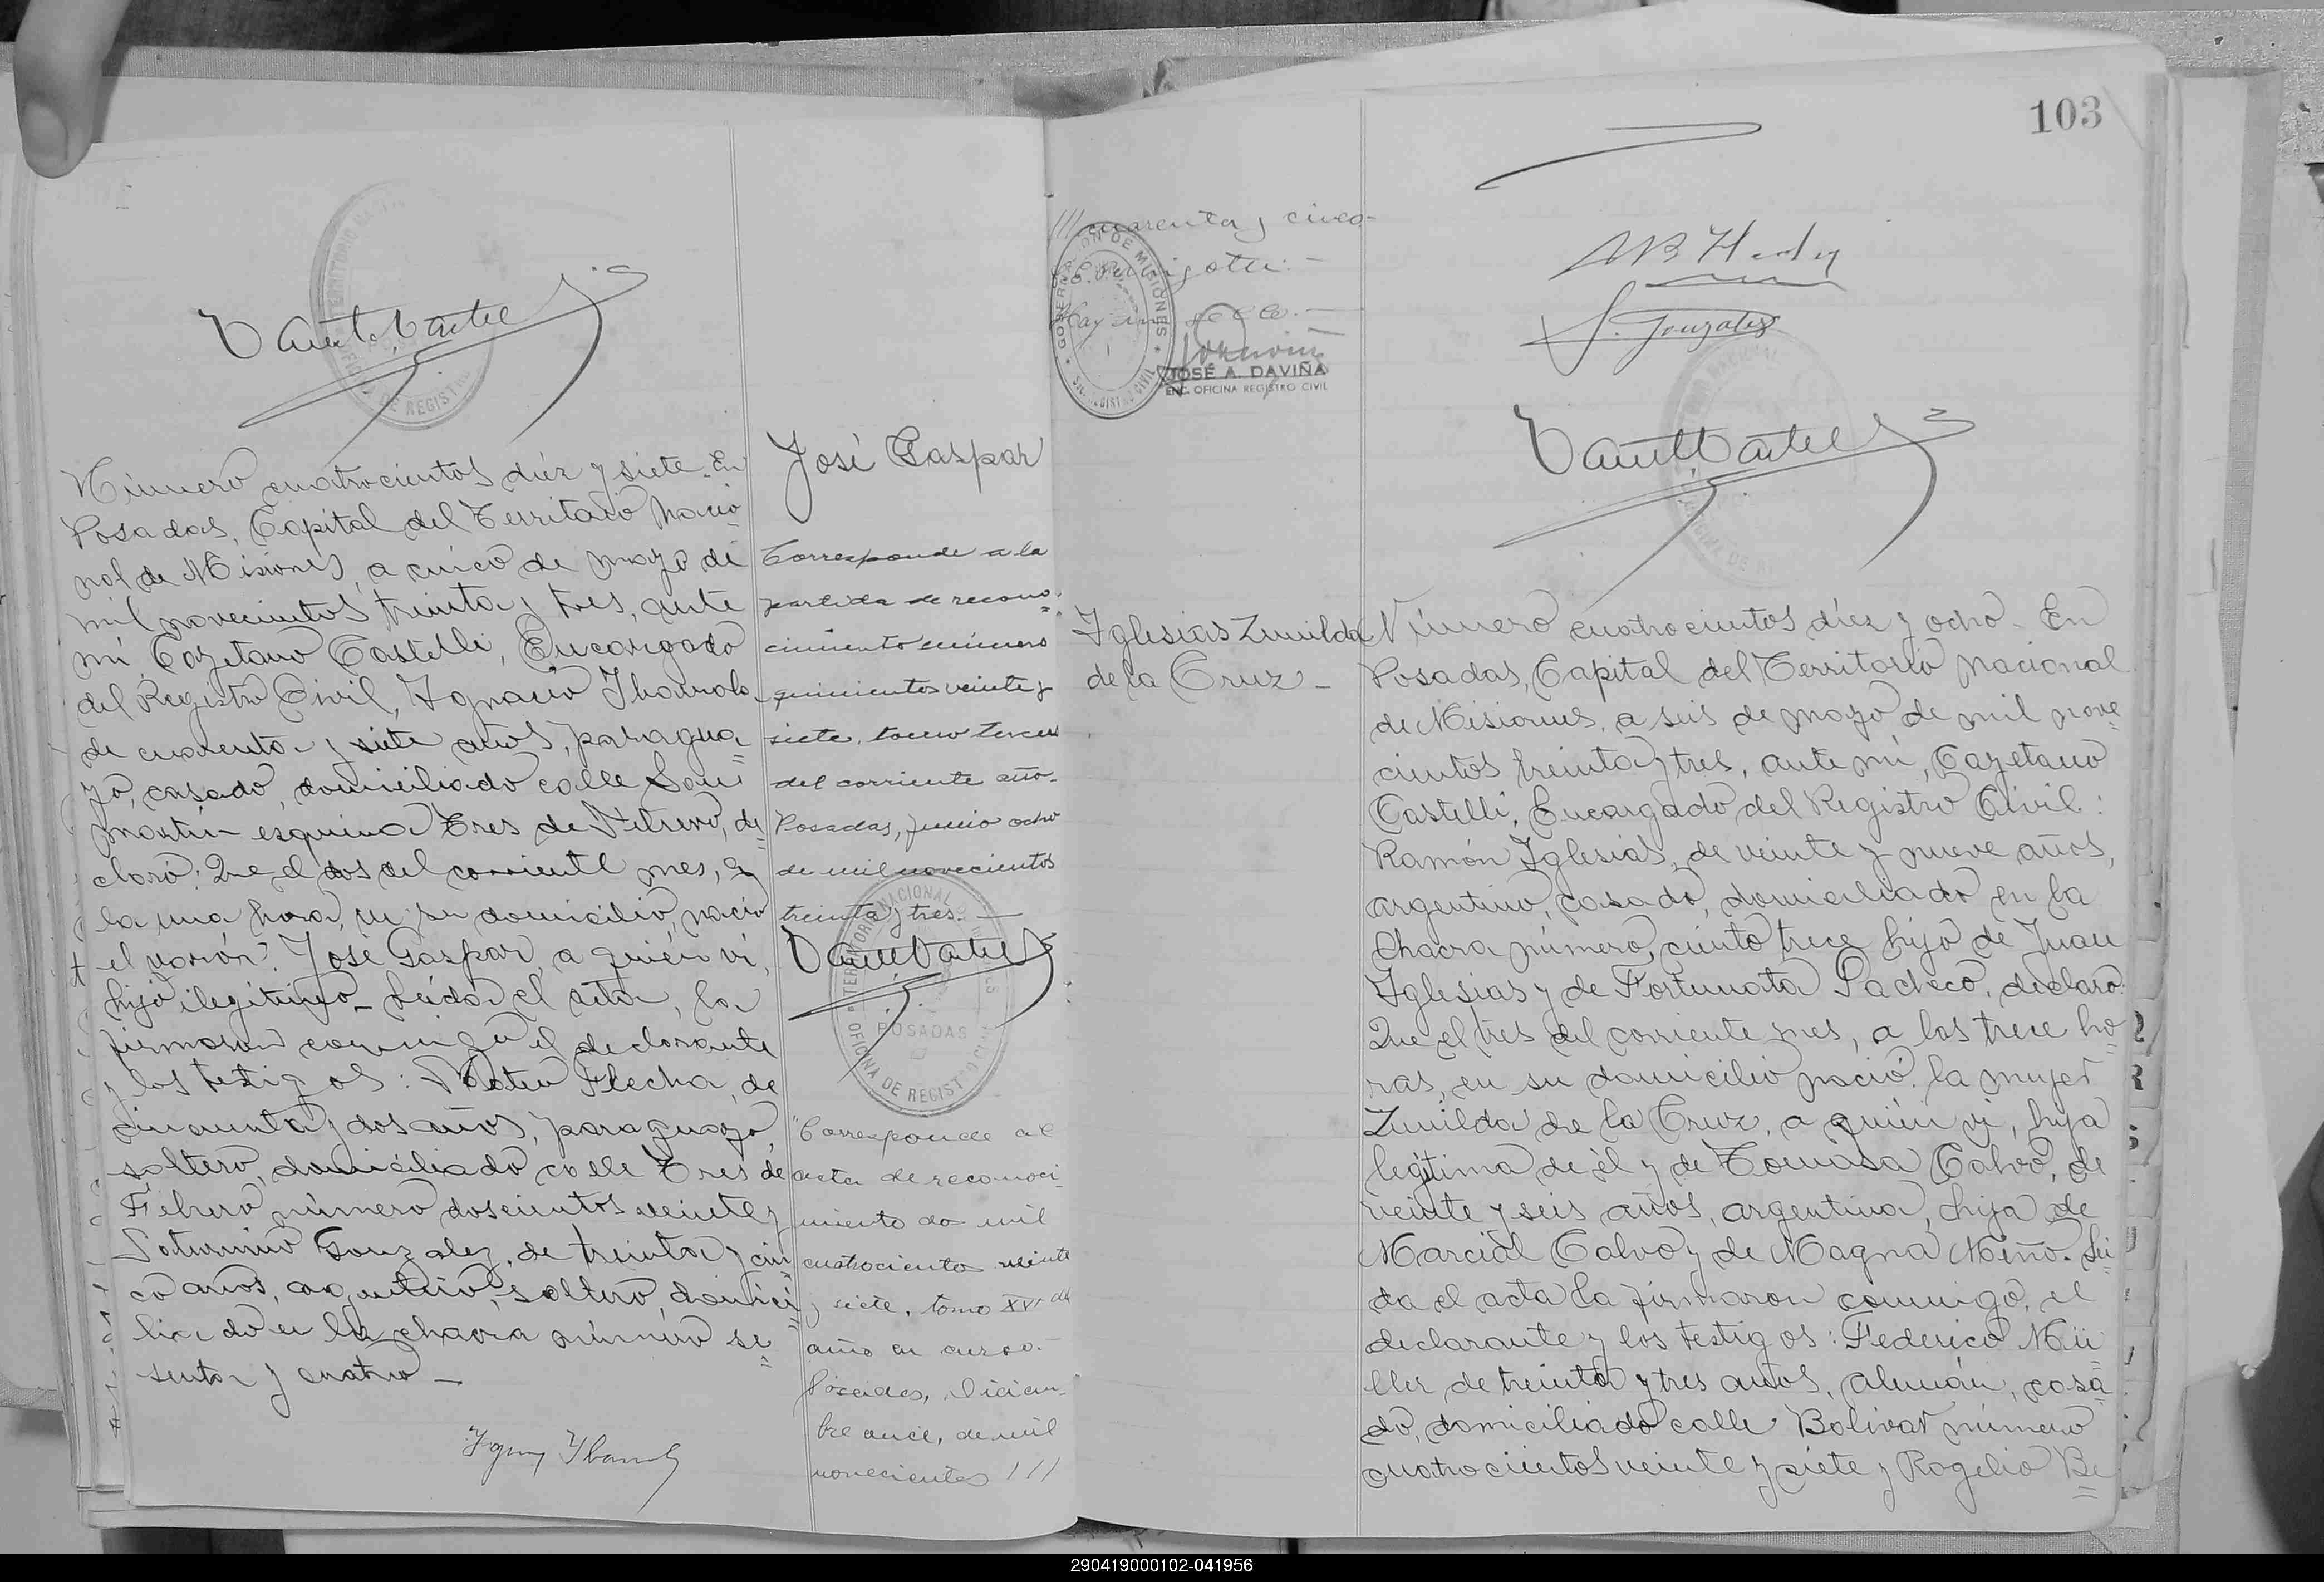 Número cuatrocientos diéz y siete. En
Posadas, Capital del Territorio Nacio
nal de Misiones, a cinco de mayo de
mil novecientos treinta y tres, ante
mí Cayetano Castelli, Encargado
del Registro Civil, Ignacio Ibarrola
de cuarenta y siete años, paragua
yo, casado, domiciliado calle San
Martín esquina Tres de Febrero, de
claró: Que el dos del corriente mes, a
la una hora, en su domicilio, nació
el varón: José Gaspar, a quién ví,
hijo ilegítimo. Leída el acta, la
firmaron conmigo el declarante
y los testigos: Mateo Flecha, de
cincuenta y dos años, paraguayo,
soltero, domiciliado calle Tres de
Febrero número doscientos veinte y
Saturnino Gonzalez, de treinta y cin
co años, argentino, soltero, domici
liado en la chacra número se
senta y cuatro
José Gaspar
Corresponde a la
partida de recono
cimiento número
quinientos veinte y
siete, tomo tercero
del corriente año.
Posadas, junio ocho
de mil novecientos
treinta y tres.
TERRITORIO NACIONAL
POSADAS
OFICINA DE REGISTRO CIVIL
Corresponde al
acta de reconoci
miento dos mil
cuatrocientos veinte
y siete, tomo XVI del
año en curso.
Posadas, Diciem
bre once, de mil
novecientos ///
103
/// cuarenta y cinco-
GOBERNACION DE MISIONES
JOSÉ A. DAVIÑA
ENC. OFICINA REGISTRO CIVIL
S. Gonzalez
Iglesias Zunilda
de la Cruz
Número cuatrocientos diez y ocho. En
Posadas, Capital del Territorio Nacional
de Misiones, a seis de mayo de mil nove
cientos treinta y tres, ante mí, Cayetano
Castelli, Encargado del Registro Civil:
Ramón Iglesias, de veinte y nueve años,
argentino, casado, domiciliado en la
chacra número ciento trece hijo de Juan
Iglesias y de Fortunata Pacheco, declaró
Que el tres del corriente mes, a las trece ho
ras, en su domicilio nació la mujer
Zunilda de la Cruz, a quién ví, hija
legítima de él y de Tomasa Calvo, de
veinte y seis años, argentina, hija de
Marcial Calvo y de Magna Miño. Leí
da el acta la firmaron conmigo, el
declarante y los testigos: Federico Mü
ller de treinta y tres años, alemán, casa
do, domiciliado calle Bolivar número
cuatrocientos veinte y siete y Rogelio Be
290419000102-041956